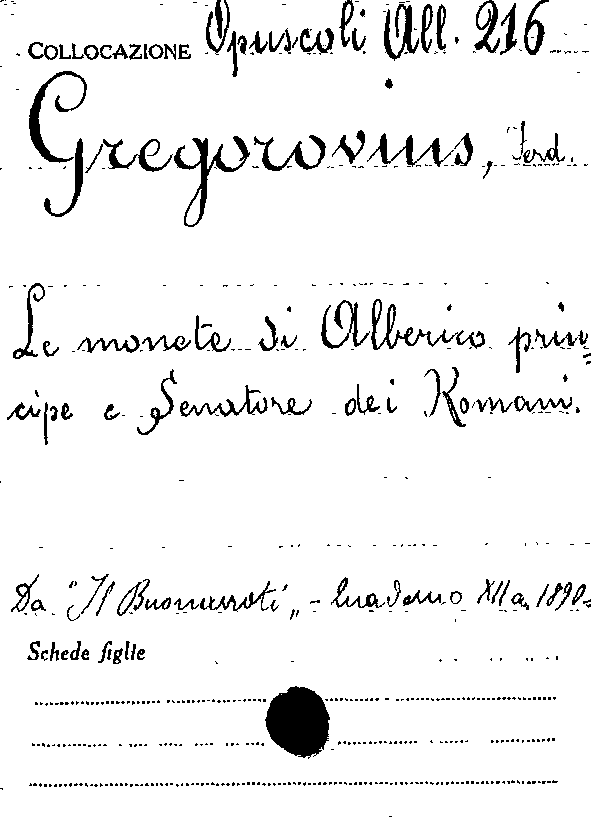 COLLOCAZIONE Opuscoli All. 216
Gregorovius, Ferd.
Le monete di Alberico prin=
cipe e Senatore dei Romani.
Da "Il Buonarroti" - Quaderno XII a. 1890.
Schede figlie